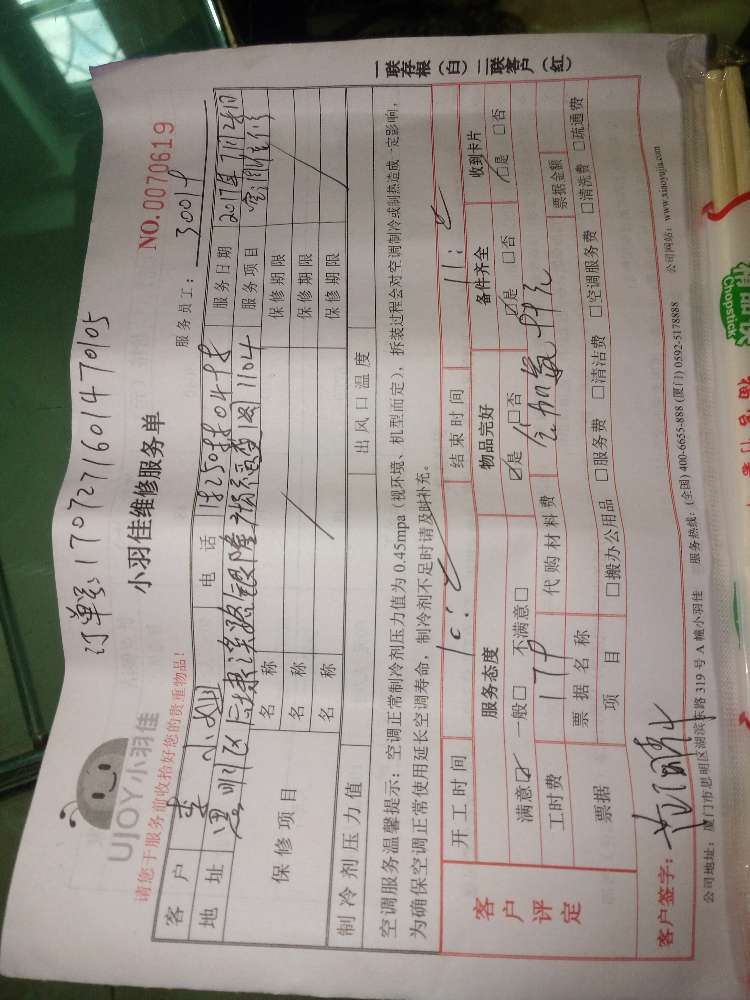 订单号:1707271601470105
UJOY小羽佳
小羽佳维修服务单
NO.0070619
请您于服务前收拾好您的贵重物品!
服务员工:
客户 李小姐 电话 服务日期 2017年7月28日
地址 思明区 银隆 1104 服务项目 空调
保修项目 名称 保修期限
名称 保修期限
名称 保修期限
制冷剂压力值 出风口温度
空调服务温馨提示:空调正常制冷剂压力值为0.45mpa(视环境、机型而定),拆装过程会对空调制冷或制热造成一定影响,
为确保空调正常使用延长空调寿命,制冷剂不足时请及时补充。
客户评定
开工时间 10: 结束时间 11:
服务态度 物品完好 备件齐全 收到卡片
满意☑ 一般□ 不满意□ ☑是 □否 ☑是 □否 □是 □否
工时费 代购材料费
票据 票据名称 票据金额
项目 □搬办公用品 □服务费 □清洁费 □空调服务费 □清洗费 □疏通费
客户签字:
公司地址:厦门市思明区湖滨东路319号A幢小羽佳 服务热线:(全国)400-6655-888(厦门)0592-5178888 公司网站:www.xmoyujia.com
一联存根(白)二联客户(红)
Chopstick